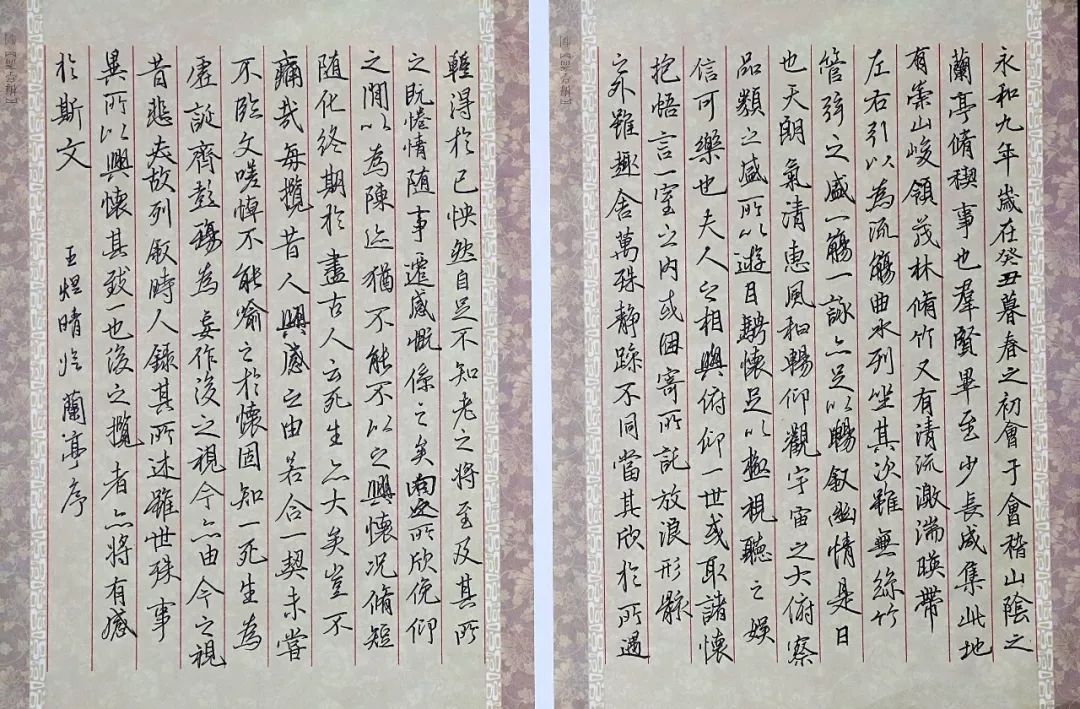 永和九年歲在癸丑暮春之初會于會稽山陰之
蘭亭脩稧事也羣賢畢至少長咸集此地
有崇山峻領茂林脩竹又有清流激湍暎帶
左右引以為流觴曲水列坐其次雖無絲竹
管弦之盛一觴一詠亦足以暢敘幽情是日
也天朗氣清惠風和暢仰觀宇宙之大俯察
品類之盛所以遊目騁懷足以極視聽之娛
信可樂也夫人之相與俯仰一世或取諸懷
抱悟言一室之內或因寄所託放浪形骸
之外雖趣舍萬殊静躁不同當其欣於所遇
蹔得於己怏然自足不知老之將至及其所
之既惓情随事遷感慨係之矣向之所欣俛仰
之閒以為陳迹猶不能不以之興懷況脩短
随化終期於盡古人云死生亦大矣豈不
痛哉每攬昔人興感之由若合一契未甞
不臨文嗟悼不能喻之於懷固知一死生為
虛誕齊彭殤為妄作後之視今亦由今之視
昔悲夫故列敘時人錄其所述雖世殊事
異所以興懷其致一也後之攬者亦將有感
於斯文 王煜晴臨蘭亭序